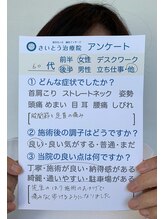 さいとう治療院 アンケート
60代 前半 女性 デスクワーク
後半 男性 立ち仕事・他
①どんな症状でしたか?
首肩こり ストレートネック 姿勢
頭痛 めまい 目 耳 腰痛 しびれ
股関節と足首の痛み
②施術後の調子はどうですか?
良い・良い気がする・普通・まだ
③当院の良い点は何ですか?
丁寧・施術が良い・納得感がある
綺麗・通いやすい・駐車場がある